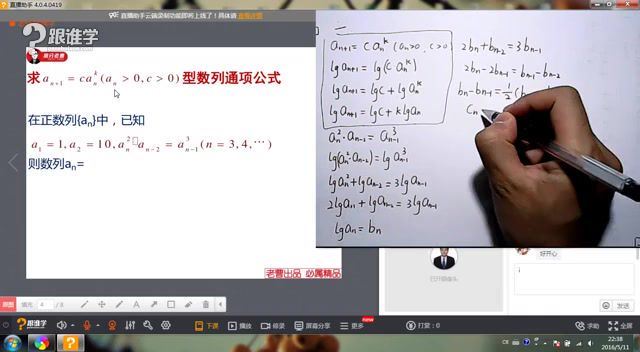 直播助手 4.0.4.0419
直播助手云端录制功能即将上线了！具体请查看详情
跟谁学
跟谁学
求 a_{n+1} = ca_n^k (a_n > 0, c > 0) 型数列通项公式
在正数列{a_n}中，已知
a_1 = 1, a_2 = 10, a_n^2□a_{n-2} = a_{n-1}^3 (n = 3, 4, ⋯)
则数列a_n=
老曹出品 必属精品
a_{n+1} = c a_n^k (a_n>0, c>0)
lg a_{n+1} = lg(c a_n^k)
lg a_{n+1} = lg c + lg a_n^k
lg a_{n+1} = lg c + k lg a_n
a_n^2·a_{n-2} = a_{n-1}^3
lg(a_n^2·a_{n-2}) = lg a_{n-1}^3
lg a_n^2 + lg a_{n-2} = 3 lg a_{n-1}
2 lg a_{n+1} + lg a_{n-2} = 3 lg a_{n-1}
lg a_n = b_n
2b_n + b_{n-2} = 3b_{n-1}
2b_n - 2b_{n-1} = b_{n-1} - b_{n-2}
b_n - b_{n-1} = 1/2 (b
C_n
好开心
已开摄像头
画图
填充
4
/ 8
跟谁学
下课
播放
停录
屏幕分享
更多
new
打赏：0
助动
全屏
22:38
2016/5/11